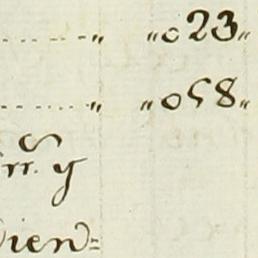 ........„ „023„
........„ „058„
rr. y
vien=